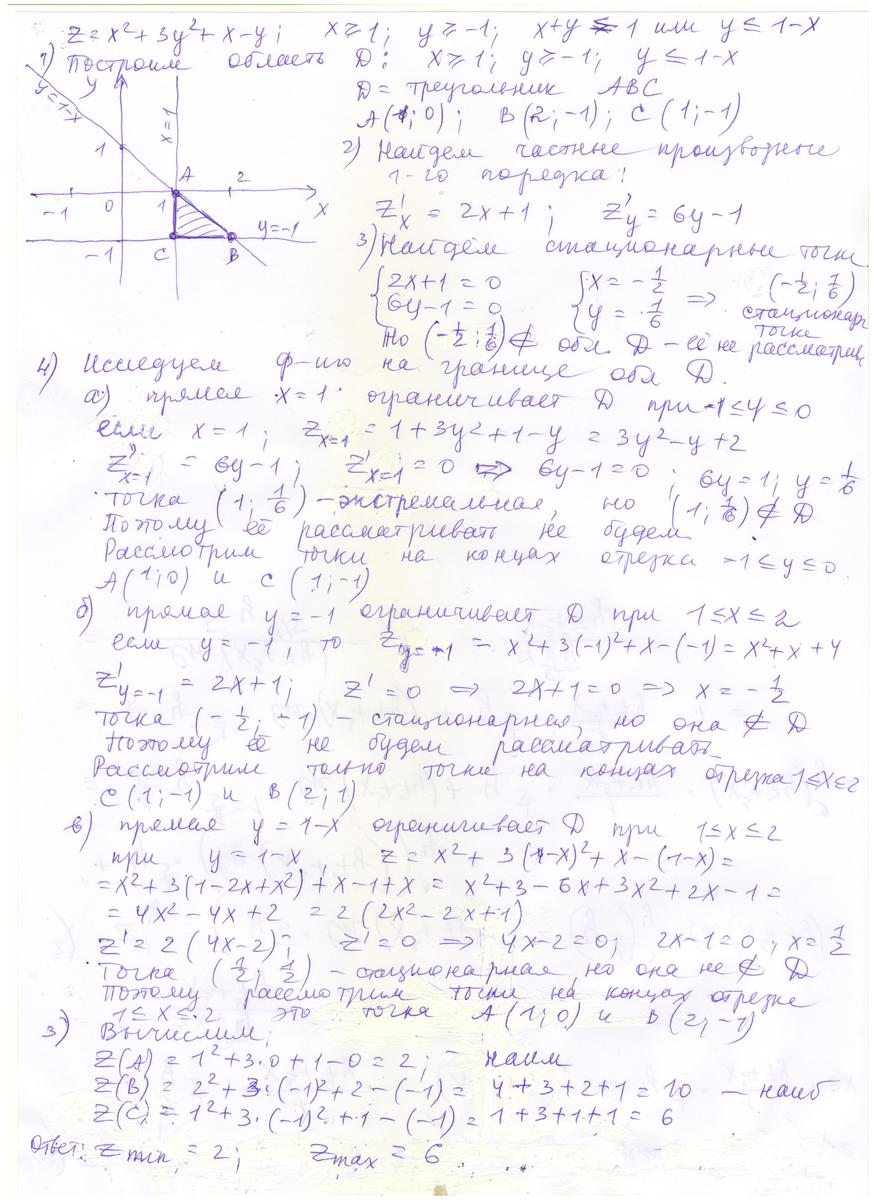 Z = x² + 3y² + x - y; x ≥ 1; y ≥ -1; x+y ≤ 1 или y ≤ 1-x
1) Построим область D: x ≥ 1; y ≥ -1; y ≤ 1-x
D = треугольник ABC
A(1; 0); B(2; -1); C(1; -1)
y
y=1-x
x=1
1
A
2
-1
0
1
x
y=-1
-1
C
B
2) Найдем частные производные
1-го порядка:
Z'x = 2x+1; Z'y = 6y-1
3) Найдём стационарные точки
{ 2x+1 = 0 { x = -1/2 ⇒ (-1/2; 1/6)
{ 6y-1 = 0 { y = 1/6 стационарн
точка
Но (-1/2; 1/6) ∉ обл. D - её не рассматрив
4) Исследуем ф-ию на границе обл D.
а) прямая x = 1 ограничивает D при -1 ≤ y ≤ 0
если x = 1; Z x=1 = 1 + 3y² + 1 - y = 3y² - y + 2
Z' x=1 = 6y-1; Z' x=1 = 0 ⇒ 6y-1 = 0; 6y = 1; y = 1/6
точка (1; 1/6) - экстремальная, но (1; 1/6) ∉ D
Поэтому её рассматривать не будем
Рассмотрим точки на концах отрезка -1 ≤ y ≤ 0
A(1; 0) и C(1; -1)
б) прямая y = -1 ограничивает D при 1 ≤ x ≤ 2
если y = -1, то Z y=-1 = x² + 3(-1)² + x - (-1) = x² + x + 4
Z' y=-1 = 2x+1; Z' = 0 ⇒ 2x+1 = 0 ⇒ x = -1/2
точка (-1/2; -1) - стационарная, но она ∉ D
Поэтому её не будем рассматривать
Рассмотрим только точки на концах отрезка 1 ≤ x ≤ 2
C(1; -1) и B(2; 1)
в) прямая y = 1-x ограничивает D при 1 ≤ x ≤ 2
при y = 1-x z = x² + 3(1-x)² + x - (1-x) =
= x² + 3(1-2x+x²) + x - 1 + x = x² + 3 - 6x + 3x² + 2x - 1 =
= 4x² - 4x + 2 = 2(2x² - 2x + 1)
Z' = 2(4x-2); Z' = 0 ⇒ 4x-2 = 0; 2x-1 = 0; x = 1/2
точка (1/2; 1/2) - стационарная но она не ∉ D
Поэтому рассмотрим точки на концах отрезка
1 ≤ x ≤ 2 это точка A(1; 0) и B(2; -1)
3) Вычислим;
Z(A) = 1² + 3·0 + 1 - 0 = 2; - наим
Z(B) = 2² + 3·(-1)² + 2 - (-1) = 4 + 3 + 2 + 1 = 10 - наиб
Z(C) = 1² + 3·(-1)² + 1 - (-1) = 1 + 3 + 1 + 1 = 6
Ответ: Z min = 2; Z max = 6